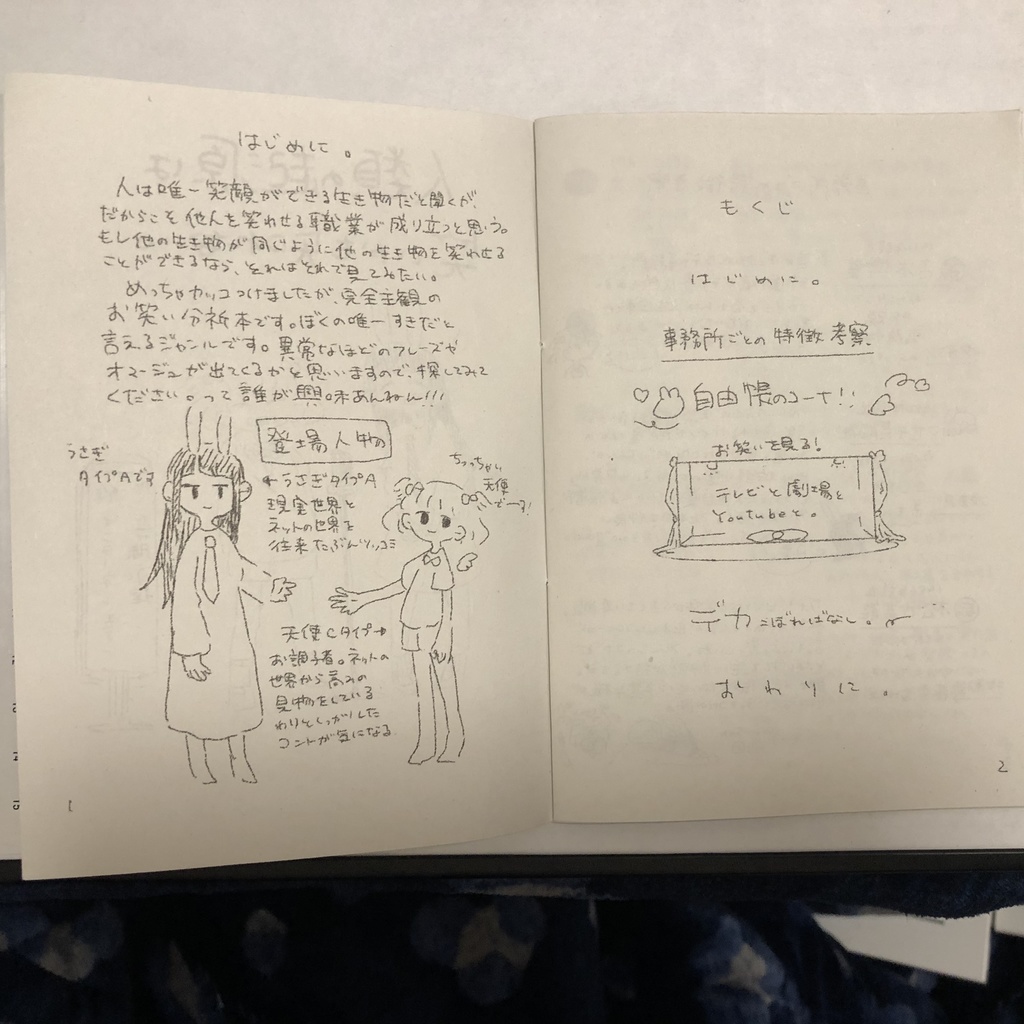 はじめに。
人は唯一笑顔ができる生き物だと聞くが、
だからこそ他人を笑わせる職業が成り立つと思う。
もし他の生き物が同じように他の生き物を笑わせる
ことができるなら、それはそれで見てみたい。
めっちゃカッコつけましたが、完全主観の
お笑い分析本です。ぼくの唯一すきだと
言えるジャンルです。異常なほどのフレーズや
オマージュが出てくるかと思いいますので、探してみて
ください。って誰が興味あんねん!!!
登場人物
うさぎ
タイプAです
←うさぎタイプA
現実世界と
ネットの世界を
往来 たぶんツッコミ
ちっちゃい
天使
でーす!
天使Cタイプ→
お調子者。ネットの
世界から高みの
見物をしている
わりとしっかりした
コントが気になる
1
もくじ
はじめに。
事務所ごとの特徴考察
自由帳のコーナー!!
お笑いを見る!
テレビと劇場と
Youtubeと。
デカこぼればなし。
おわりに。
2